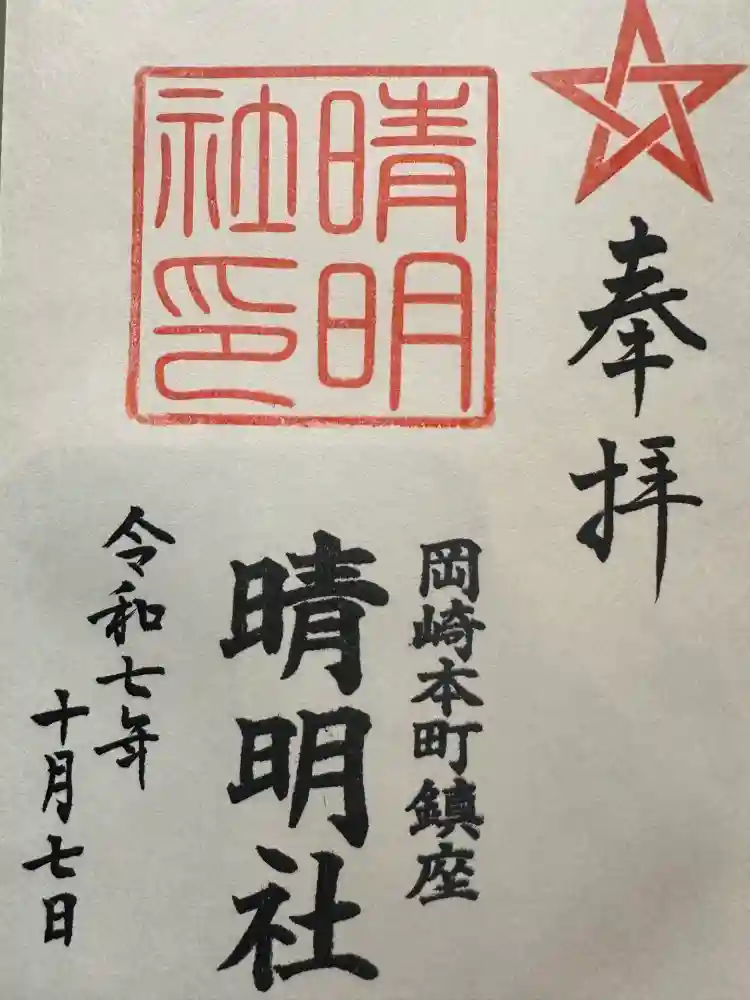 奉拝
岡崎本町鎮座
晴明社
晴明
社印
令和七年
十月七日